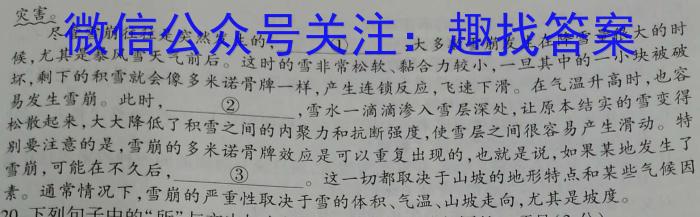 灾害。
微信公众号关注：趣找答案
尽管雪崩往往是突然发生的，①大多数雪崩发生在降雪量很大的时
候，尤其是暴风雪天气前后。这时的雪非常松软、黏合力较小，一旦其中的一小块被破
坏，剩下的积雪就会像多米诺骨牌一样，产生连锁反应，飞速下滑。在气温升高时，也容
易发生雪崩。此时，②，雪水一滴滴渗入雪层深处，让原本结实的雪变得
松散起来，大大降低了积雪之间的内聚力和抗断强度，使雪层之间很容易产生滑动。特
别要注意的是，雪崩的多米诺骨牌效应是可以重复出现的，也就是说，如果某地发生了
雪崩，可能在不久后，③。这一切都取决于山坡的地形特点和某些气候因
素。通常情况下，雪崩的严重性取决于雪的体积、气温、山坡走向，尤其是坡度。
20.下列句子中的“所”与文中